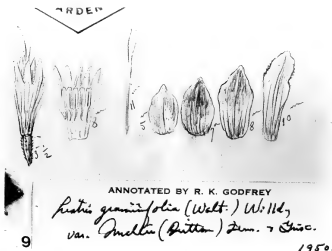 ARDEN
ANNOTATED BY R. K. GODFREY
Liatris graminifolia (Walt.) Willd.
var. Smallii (Britton) Fern. & Grisc.
9
1950